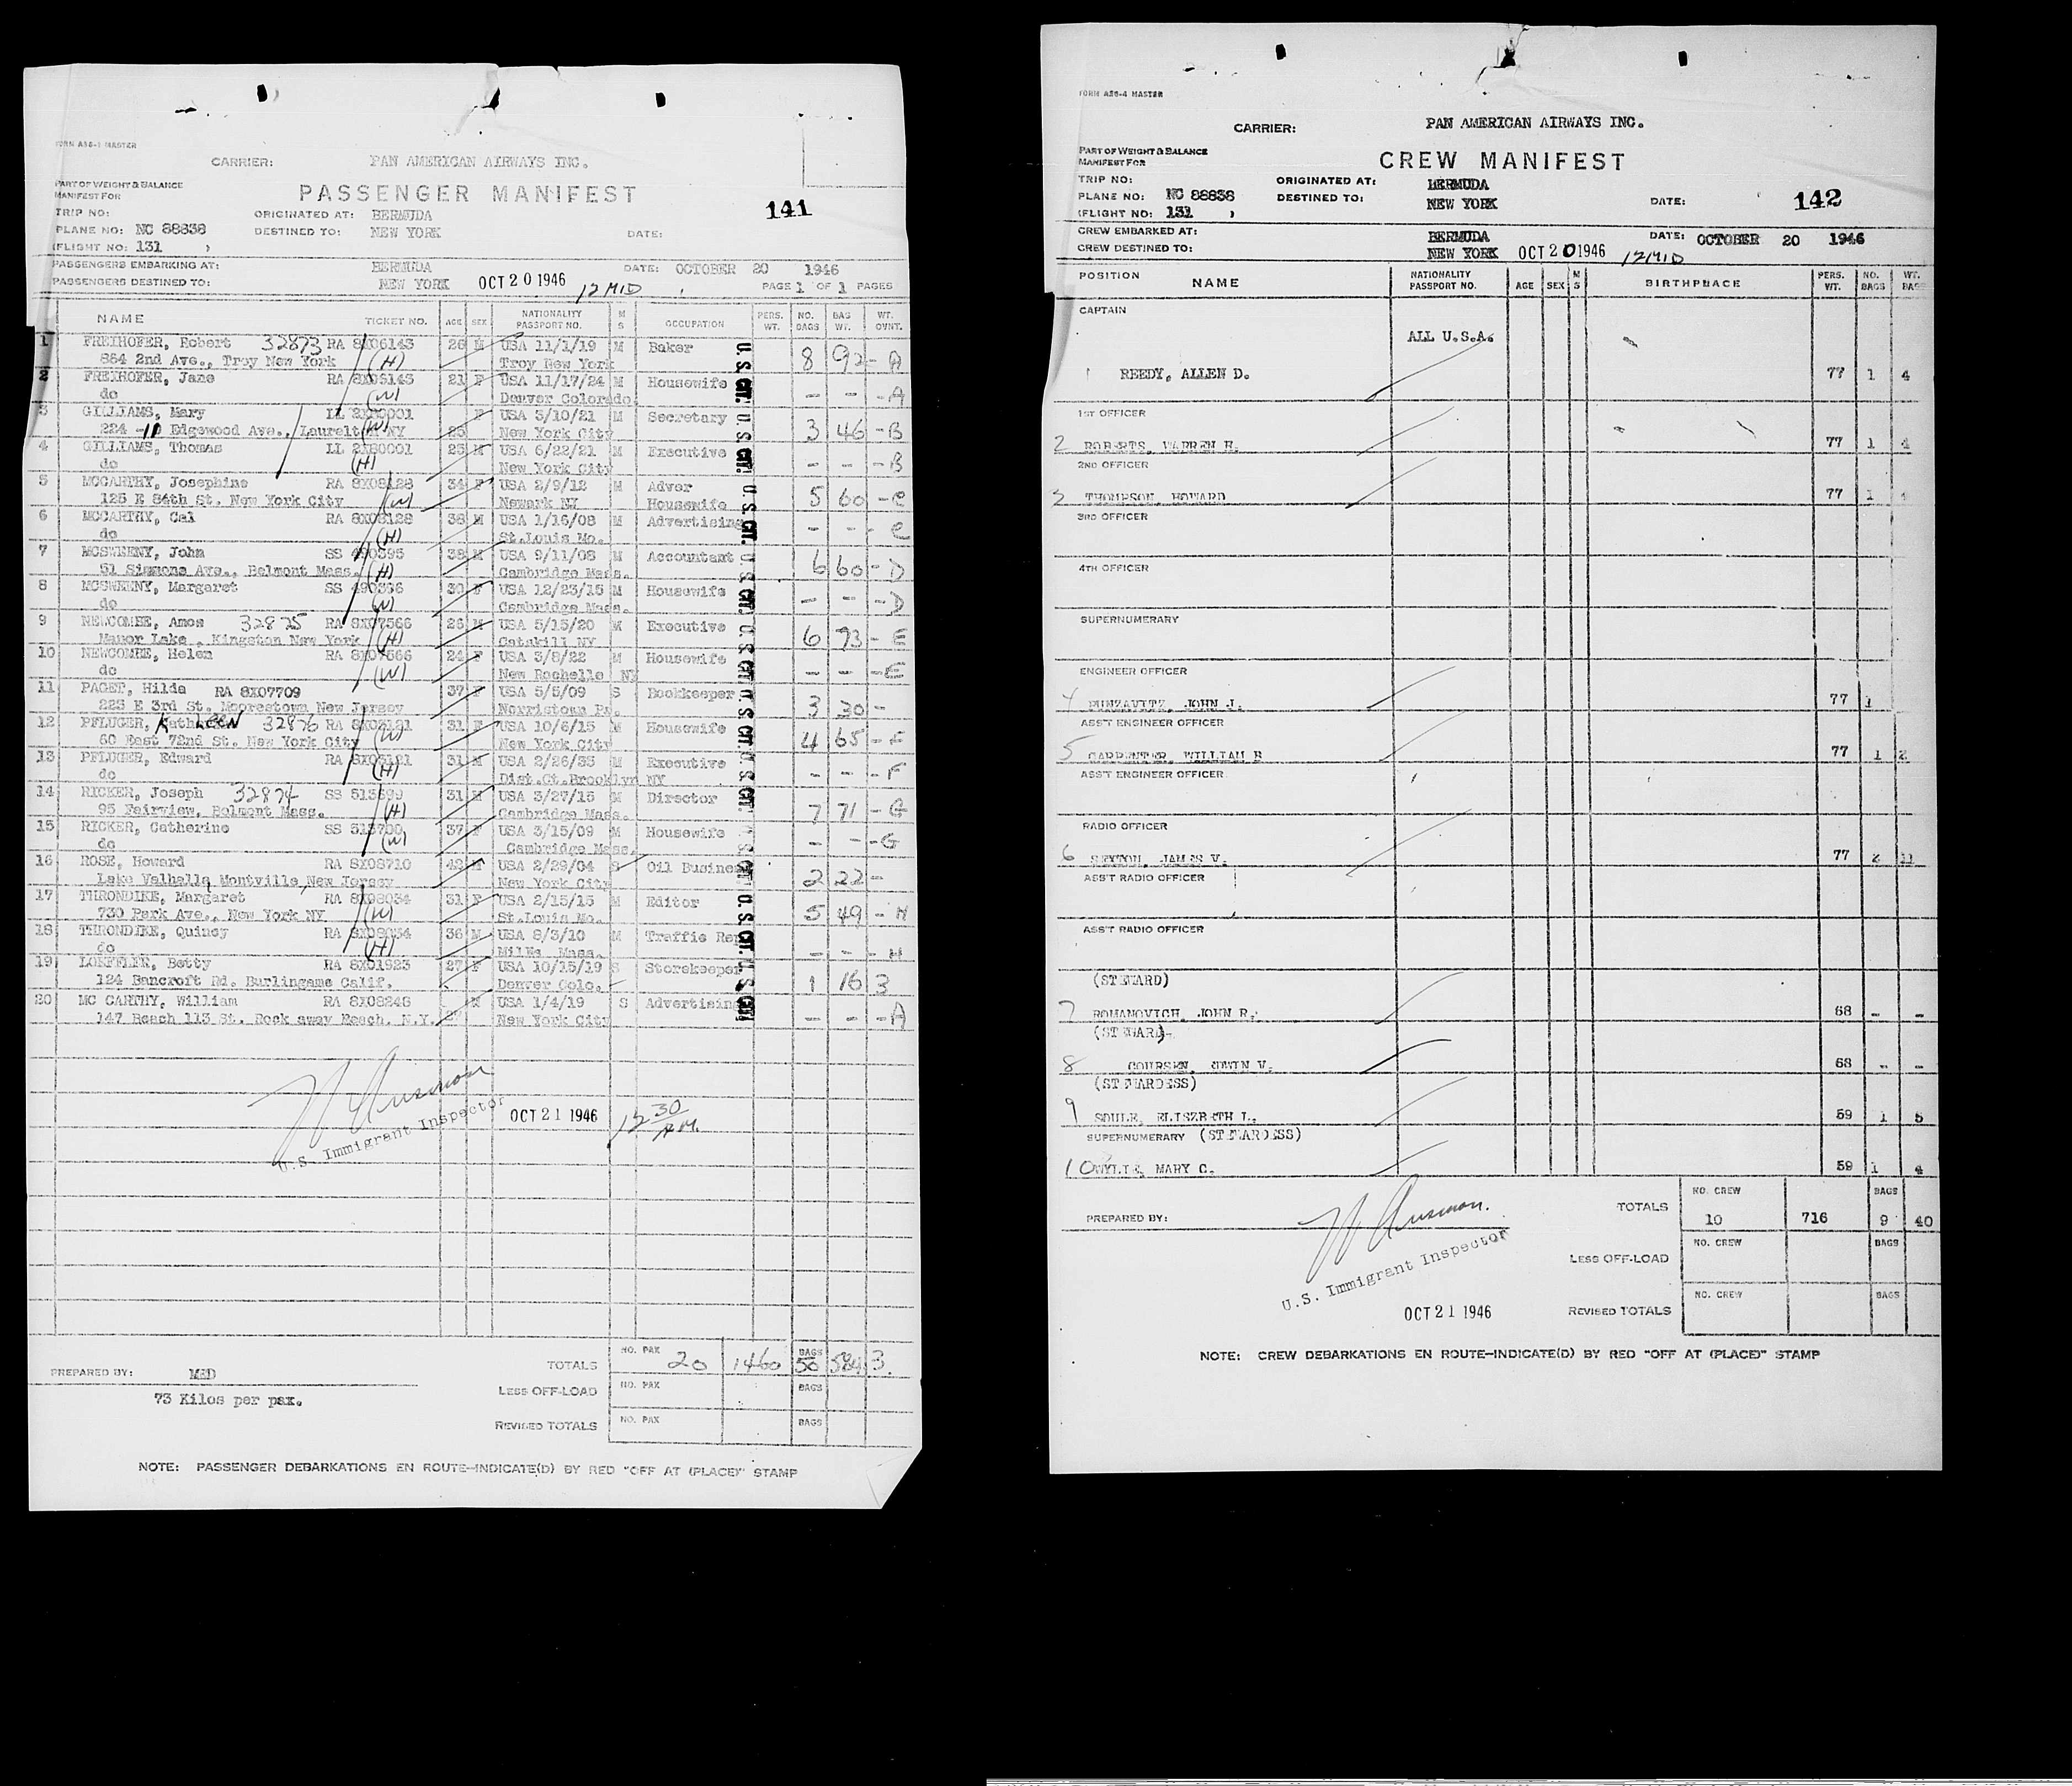 FORM ASB-1 MASTER
CARRIER: PAN AMERICAN AIRWAYS INC.
PART OF WEIGHT & BALANCE
MANIFEST FOR
PASSENGER MANIFEST
141
TRIP NO: ORIGINATED AT: BERMUDA
PLANE NO: NC 88838 DESTINED TO: NEW YORK DATE:
(FLIGHT NO: 131 )
PASSENGERS EMBARKING AT: BERMUDA DATE: OCTOBER 20 1946
PASSENGERS DESTINED TO: NEW YORK OCT 20 1946 12 MID PAGE 1 OF 1 PAGES
NAME TICKET NO. AGE SEX NATIONALITY PASSPORT NO. M S OCCUPATION PERS. WT. NO. BAGS BAG WT. WT. OVNT.
1 FREIHOFER, Robert 32873 RA 8X06143 26 M USA 11/1/19 M Baker
884 2nd Ave., Troy New York (H) Troy New York 8 92 - A
2 FREIHOFER, Jane RA 8X06143 21 F USA 11/17/24 M Housewife
do (W) Denver Colorado. - - - A
3 GILLIAMS, Mary LL 2X80001 F USA 3/10/21 M Secretary
224 -10 Edgewood Ave., Laurelt NY (W) 25 New York City 3 46 - B
4 GILLIAMS, Thomas LL 2X80001 25 M USA 6/22/21 M Executive
do (H) New York City - - - B
5 MCCARTHY, Josephine RA 8X08128 34 F USA 2/9/12 M Adver
125 E 84th St. New York City (W) Newark NJ Housewife 5 60 - C
6 MCCARTHY, Cal RA 8X08128 38 M USA 1/16/08 M Advertising
do (H) St.Louis Mo. - - - C
7 MCSWEENY, John SS 490395 38 M USA 9/11/08 M Accountant
51 Simmons Ave., Belmont Mass. (H) Cambridge Mass. 6 60 - D
8 MCSWEENY, Margaret SS 490396 30 F USA 12/23/15 M Housewife
do (W) Cambridge Mass. - - - D
9 NEWCOMBE, Amos 32875 RA 8X07566 26 M USA 5/15/20 M Executive
Manor Lake , Kingston New York (H) Catskill NY 6 93 - E
10 NEWCOMBE, Helen RA 8X07566 24 F USA 3/8/22 M Housewife
do (W) New Rochelle NY - - - E
11 PAGET, Hilda RA 8X07709 37 F USA 5/5/09 S Bookkeeper
223 E 3rd St. Moorestown New Jersey Norristown Pa. 3 30 -
12 PFLUGER, KathLEEN 32876 RA 8X03121 31 F USA 10/6/15 M Housewife
60 East 72nd St. New York City (W) New York City 4 65 - F
13 PFLUGER, Edward RA 8X03121 31 M USA 2/26/35 M Executive
do (H) Dist.Ct.Brooklyn NY - - - F
14 RICKER, Joseph 32874 SS 513699 31 M USA 3/27/15 M Director
93 Fairview, Belmont Mass. (H) Cambridge Mass. 7 71 - G
15 RICKER, Catherine SS 513700 37 F USA 3/15/09 M Housewife
do (W) Cambridge Mass. - - - G
16 ROSE, Howard RA 8X08710 42 M USA 2/29/04 S Oil Business
Lake Valhalla Montville, New Jersey New York City 2 22 -
17 THRONDIKE, Margaret RA 8X08034 31 F USA 2/15/15 M Editor
730 Park Ave., New York NY (W) St.Louis Mo. 5 49 - H
18 THRONDIKE, Quincy RA 8X08034 36 M USA 8/3/10 M Traffic Rep
do (H) Mass. - - - H
19 LOEFFLER, Betty RA 8X01923 27 F USA 10/15/19 S Storekeeper
124 Bancroft Rd. Burlingame Calif. Denver Colo. 1 16 3
20 MC CARTHY, William RA 8X08248 M USA 1/4/19 S Advertising
147 Beach 113 St. Rock away Beach. N.Y. New York City - - - A
U.S. CIT.
OCT 21 1946 12 30 A.M.
U.S. Immigrant Inspector
PREPARED BY: MED
73 Kilos per pax.
TOTALS NO. PAX 20 1460 BAGS 50 584 3
LESS OFF-LOAD NO. PAX BAGS
REVISED TOTALS NO. PAX BAGS
NOTE: PASSENGER DEBARKATIONS EN ROUTE—INDICATE(D) BY RED "OFF AT (PLACE)" STAMP
FORM ASB-4 MASTER
CARRIER: PAN AMERICAN AIRWAYS INC.
PART OF WEIGHT & BALANCE
MANIFEST FOR
CREW MANIFEST
TRIP NO: ORIGINATED AT: BERMUDA
PLANE NO: NC 88838 DESTINED TO: NEW YORK DATE: 142
(FLIGHT NO: 131 )
CREW EMBARKED AT: BERMUDA DATE: OCTOBER 20 1946
CREW DESTINED TO: NEW YORK OCT 20 1946 12 MID
POSITION NAME NATIONALITY PASSPORT NO. AGE SEX M S BIRTHPLACE PERS. WT. NO. BAGS WT. BAGS
CAPTAIN
ALL U.S.A.
1 REEDY, ALLEN D. 77 1 4
1ST OFFICER
2 ROBERTS, WARREN H. 77 1 4
2ND OFFICER
3 THOMPSON, HOWARD 77 1
3RD OFFICER
4TH OFFICER
SUPERNUMERARY
ENGINEER OFFICER
4 PUNZAVITZ, JOHN J. 77 1
ASS'T ENGINEER OFFICER
5 CARPENTER, WILLIAM E 77 1 2
ASS'T ENGINEER OFFICER
RADIO OFFICER
6 SEXTON, JAMES V. 77 2 11
ASS'T RADIO OFFICER
ASS'T RADIO OFFICER
(STEWARD)
7 ROMANOVICH, JOHN R. 68 - -
(STEWARD)
8 COURSEN, EDWIN V. 68 - -
(STEWARDESS)
9 SOULE, ELISZBETH L. 59 1 5
SUPERNUMERARY (STEWARDESS)
10 WYLIE, MARY C. 59 1 4
PREPARED BY:
TOTALS NO. CREW 10 716 BAGS 9 40
LESS OFF-LOAD NO. CREW BAGS
REVISED TOTALS NO. CREW BAGS
U.S. Immigrant Inspector
OCT 21 1946
NOTE: CREW DEBARKATIONS EN ROUTE—INDICATE(D) BY RED "OFF AT (PLACE)" STAMP